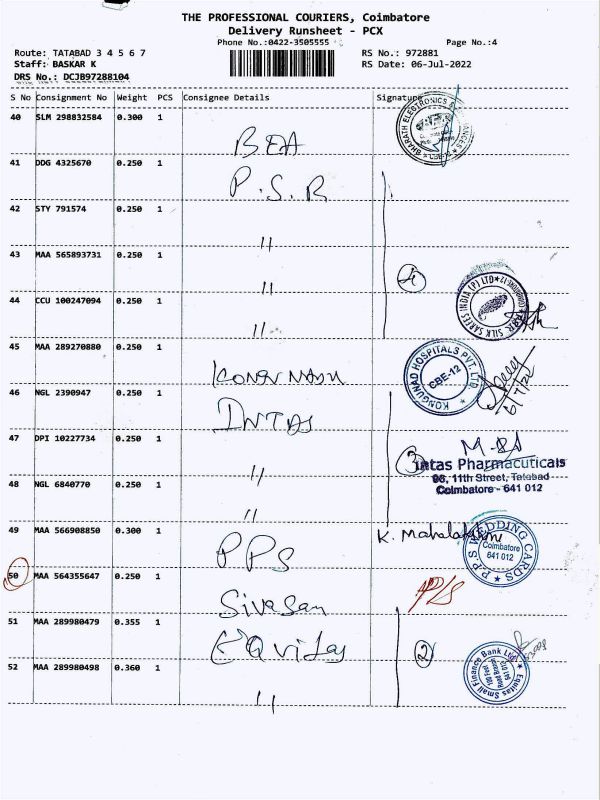 THE PROFESSIONAL COURIERS, Coimbatore
Delivery Runsheet - PCX
Phone No.:0422-3505555
Page No.:4
Route: TATABAD 3 4 5 6 7
RS No.: 972881
Staff: BASKAR K
RS Date: 06-Jul-2022
DRS No.: DCJB97288104
S No Consignment No Weight PCS Consignee Details Signature
40 SLM 298832584 0.300 1
BEA
BHARATH ELECTRONICS &
41 DDG 4325670 0.250 1
P.S.R
42 STY 791574 0.250 1
"
43 MAA 565893731 0.250 1
"
4
44 CCU 100247094 0.250 1
"
SILK SAREES INDIA (P) LTD
45 MAA 289270880 0.250 1
KONGUNADU
KONGUNAD HOSPITALS PVT. LTD.
CBE-12
6/7/22
46 NGL 2390947 0.250 1
INTAS
47 DPI 10227734 0.250 1
"
3
Intas Pharmacuticals
96, 11th Street, Tatabad
Coimbatore - 641 012
48 NGL 6840770 0.250 1
"
49 MAA 566908850 0.300 1
PPS
K. Mahalakshmi
PPS WEDDING CARDS
Coimbatore
641 012
50 MAA 564355647 0.250 1
Sivasan
51 MAA 289980479 0.355 1
Equitas
2
Equitas Small Finance Bank Ltd
52 MAA 289980498 0.360 1
"